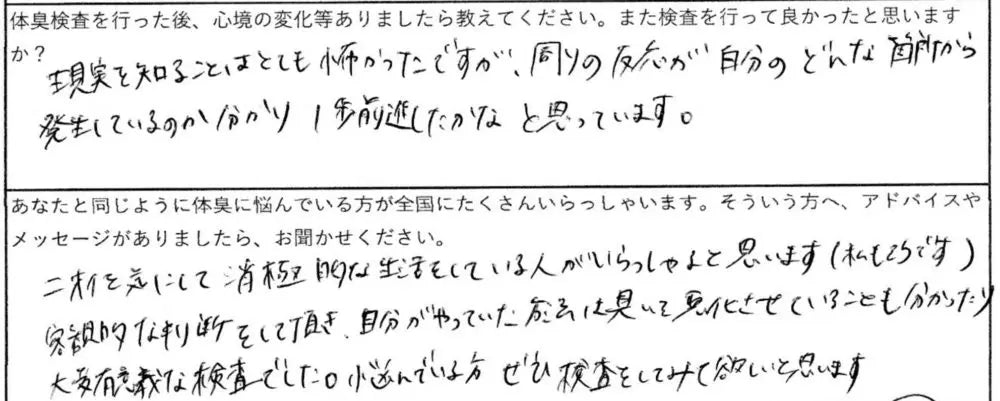 体臭検査を行った後、心境の変化等ありましたら教えてください。また検査を行って良かったと思います
か?
現実を知ることはとても怖かったですが、周りの反応が自分のどんな箇所から
発生しているのか分かり1歩前進したかなと思っています。
あなたと同じように体臭に悩んでいる方が全国にたくさんいらっしゃいます。そういう方へ、アドバイスや
メッセージがありましたら、お聞かせください。
ニオイを気にして消極的な生活をしている人がいらっしゃると思います(私もそうです)
客観的な判断をして頂き、自分がやっていた方法は臭いを悪化させていることも分かったり
大変有意義な検査でした。悩んでいる方ぜひ検査をしてみて欲しいと思います